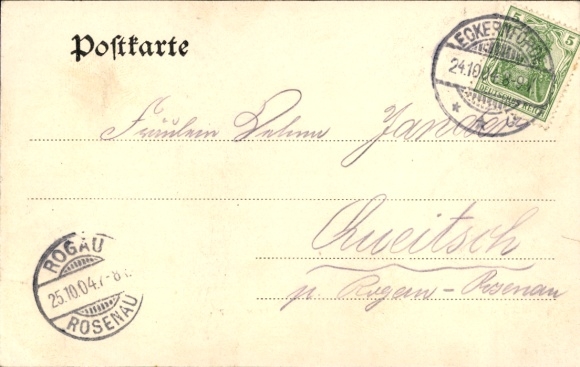 Postkarte
5 5
DEUTSCHES REICH
ECKERNFÖRDE
24.10.04
Fräulein
Queitsch
p. Rogau-Rosenau
ROGAU
25.10.04.7-8
ROSENAU